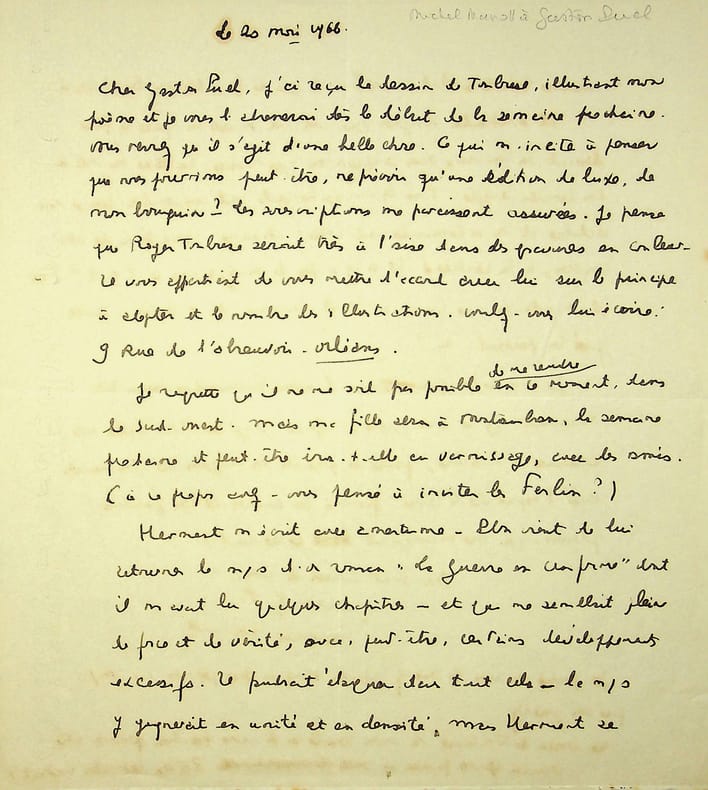 Michel Manoll à Gaston Puel
le 20 mai 1966.
Cher Gaston Puel, j'ai reçu le dessin de Toulouse, illustrant mon
poème et je vous l'enverrai dès le début de la semaine prochaine.
Vous verrez qu'il s'agit d'une belle chose. Ce qui m'incite à penser
que nous pourrions peut-être, ne prévoir qu'une édition de luxe, de
mon bouquin ? Les souscriptions me paraissent assurées. Je pense
que Roger Toulouse serait très à l'aise dans des gravures en couleur.
Il vous appartient de vous mettre d'accord avec lui sur le principe
à adopter et le nombre des illustrations. Voulez-vous lui écrire :
9 Rue de l'abreuvoir - Orléans.
Je regrette qu'il ne me soit pas possible de me rendre en ce moment, dans
le Sud-ouest. Mais ma fille sera à Montauban, la semaine
prochaine et peut-être ira-t-elle au vernissage, avec les amis.
(à ce propos avez-vous pensé à inviter les Ferlin ?)
Herment m'écrit avec amertume - Plon vient de lui
retourner le m/s d'un roman "La Guerre en" dont
il m'avait lu quelques chapitres - et qui me semblait plein
de force et de vérité, avec, peut-être, certains développements
excessifs. Il faudrait élaguer dans tout cela - le m/s
y gagnerait en unité et en densité, mais Herment se